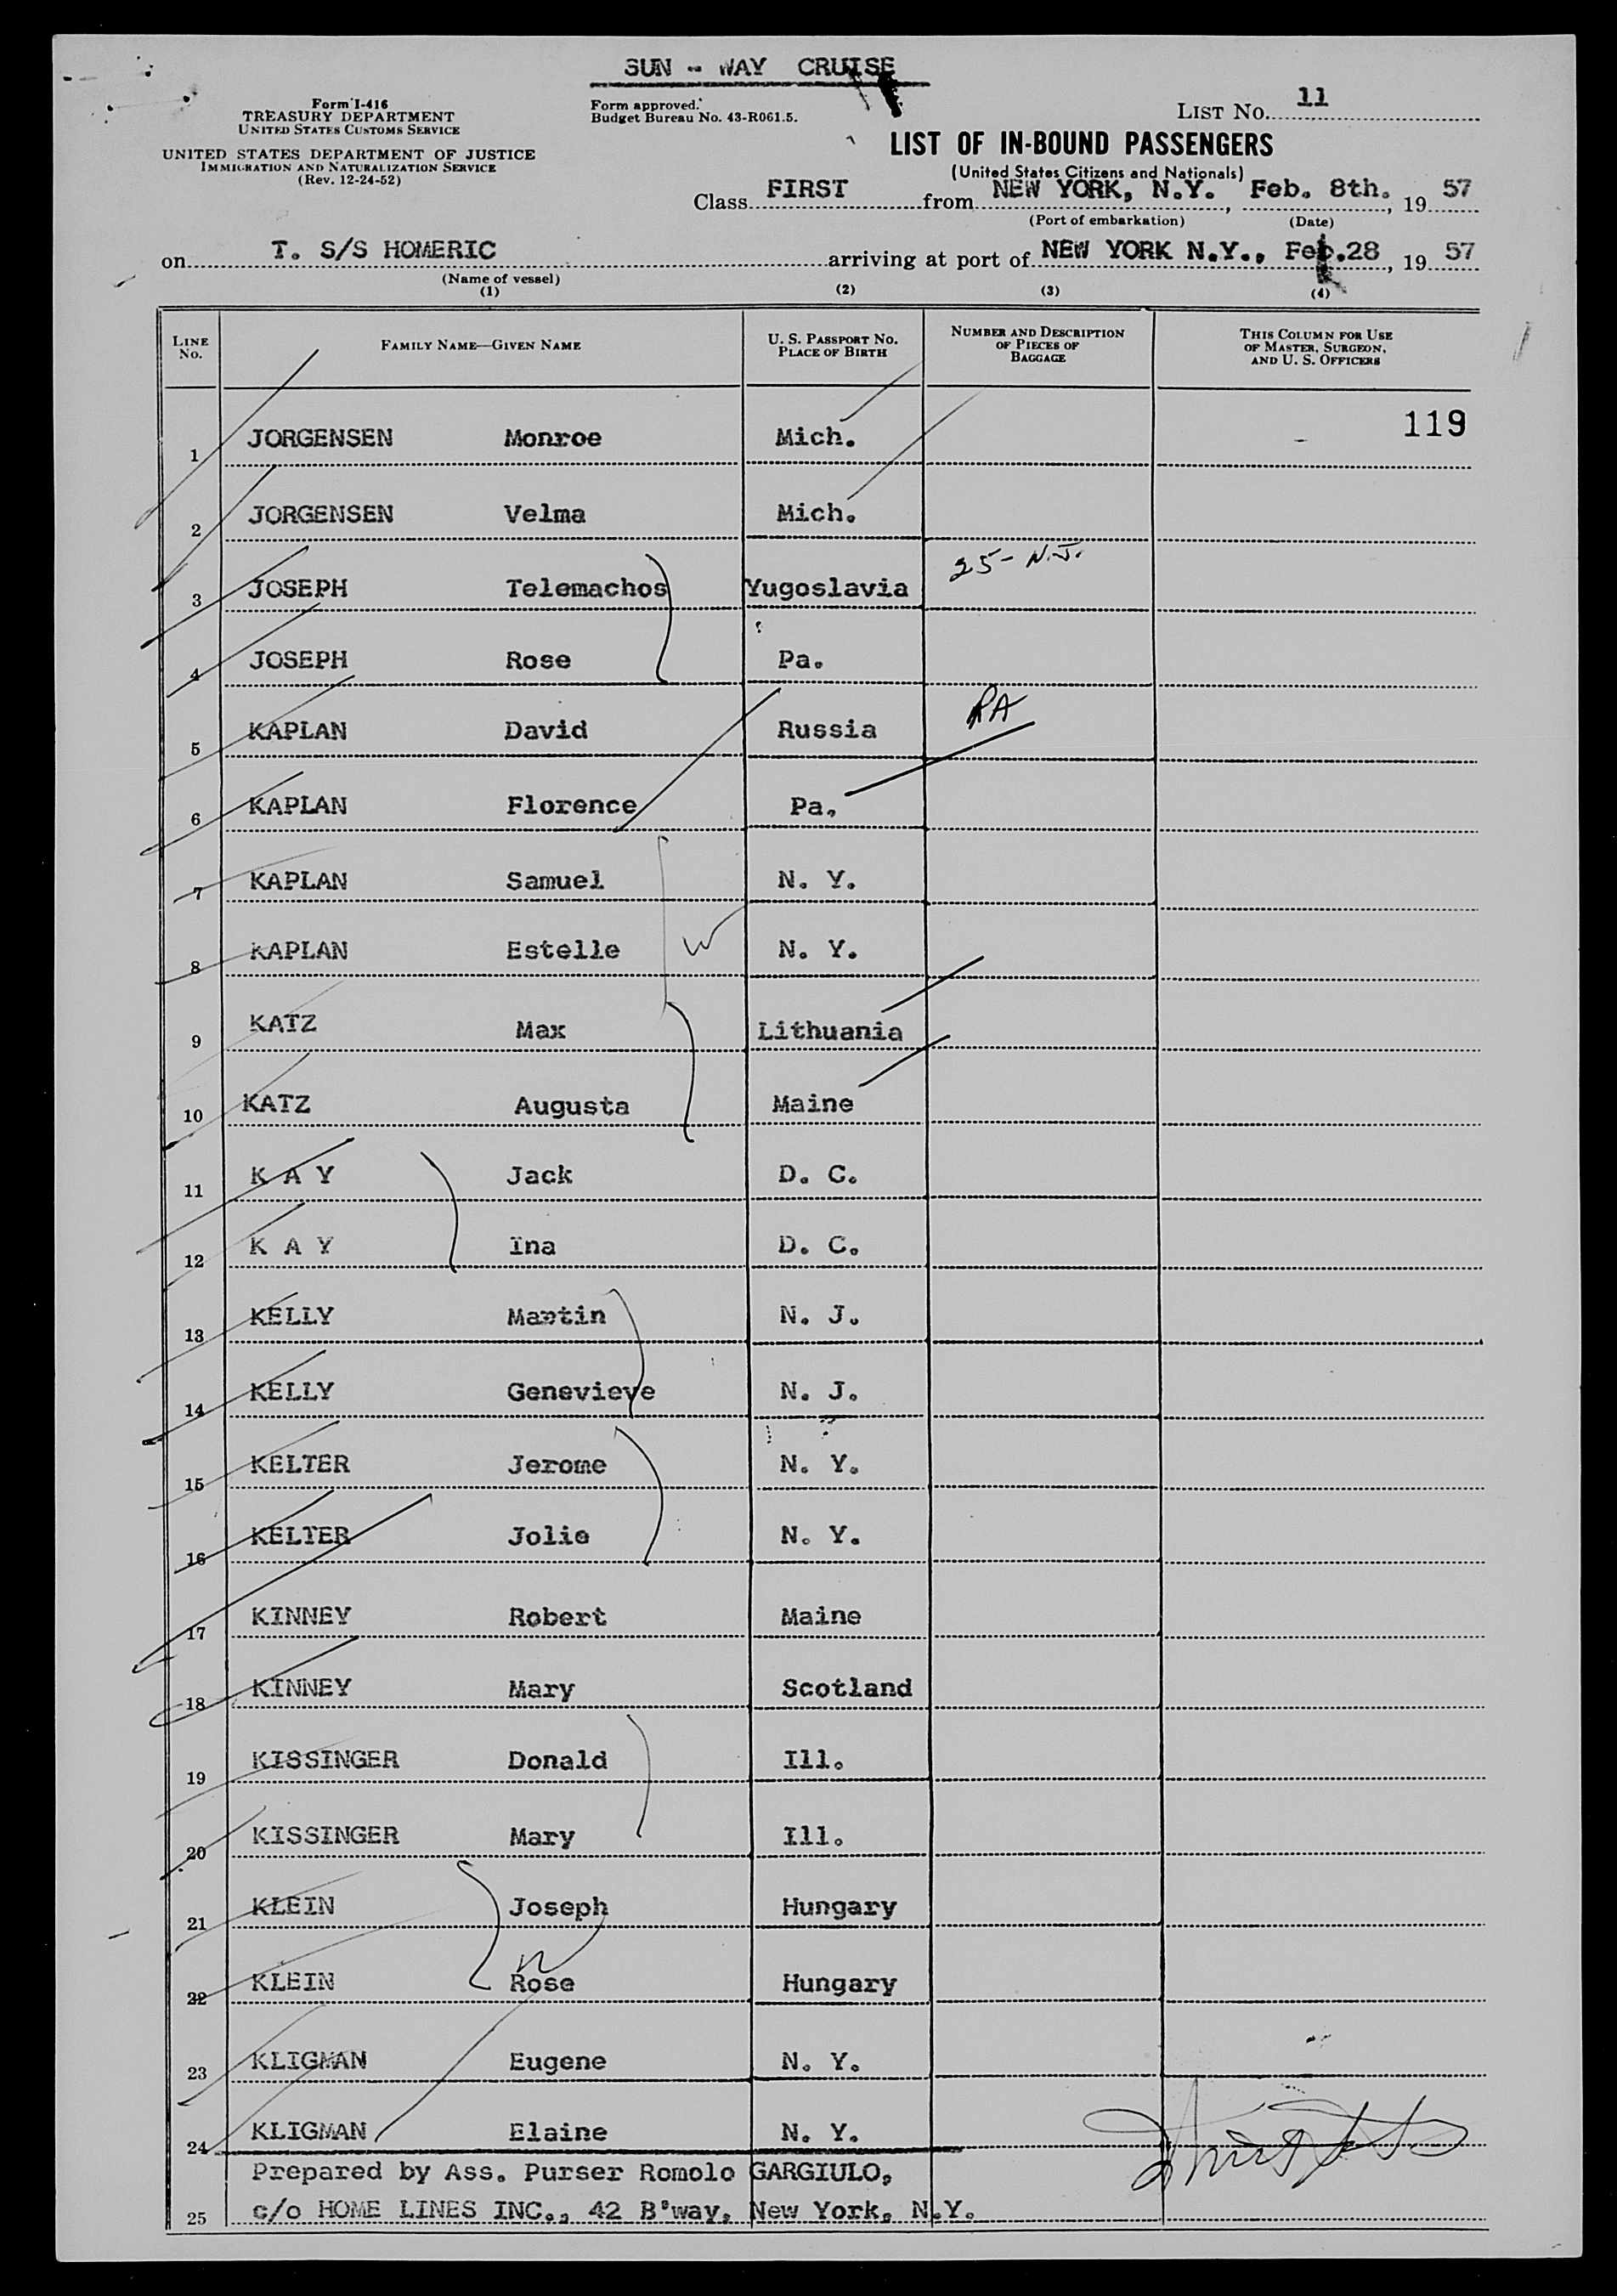 SUN - WAY CRUISE
Form I-416
TREASURY DEPARTMENT
UNITED STATES CUSTOMS SERVICE
UNITED STATES DEPARTMENT OF JUSTICE
IMMIGRATION AND NATURALIZATION SERVICE
(Rev. 12-24-52)
Form approved.
Budget Bureau No. 43-R061.5.
LIST NO. 11
LIST OF IN-BOUND PASSENGERS
(United States Citizens and Nationals)
Class FIRST from NEW YORK, N.Y., Feb. 8th., 19 57
(Port of embarkation) (Date)
on T. S/S HOMERIC arriving at port of NEW YORK N.Y., Feb.28, 19 57
(Name of vessel)
(1) (2) (3) (4)
LINE NO. FAMILY NAME—GIVEN NAME U. S. PASSPORT NO. PLACE OF BIRTH NUMBER AND DESCRIPTION OF PIECES OF BAGGAGE THIS COLUMN FOR USE OF MASTER, SURGEON, AND U. S. OFFICERS
119
1 JORGENSEN Monroe Mich.
2 JORGENSEN Velma Mich.
3 JOSEPH Telemachos Yugoslavia 25- N.J.
4 JOSEPH Rose Pa.
5 KAPLAN David Russia PA
6 KAPLAN Florence Pa.
7 KAPLAN Samuel N. Y.
8 KAPLAN Estelle N. Y.
9 KATZ Max Lithuania
10 KATZ Augusta Maine
11 K A Y Jack D. C.
12 K A Y Ina D. C.
13 KELLY Martin N. J.
14 KELLY Genevieve N. J.
15 KELTER Jerome N. Y.
16 KELTER Jolie N. Y.
17 KINNEY Robert Maine
18 KINNEY Mary Scotland
19 KISSINGER Donald Ill.
20 KISSINGER Mary Ill.
21 KLEIN Joseph Hungary
22 KLEIN Rose Hungary
23 KLIGMAN Eugene N. Y.
24 KLIGMAN Elaine N. Y.
Prepared by Ass. Purser Romolo GARGIULO,
25 c/o HOME LINES INC., 42 B'way, New York, N.Y.